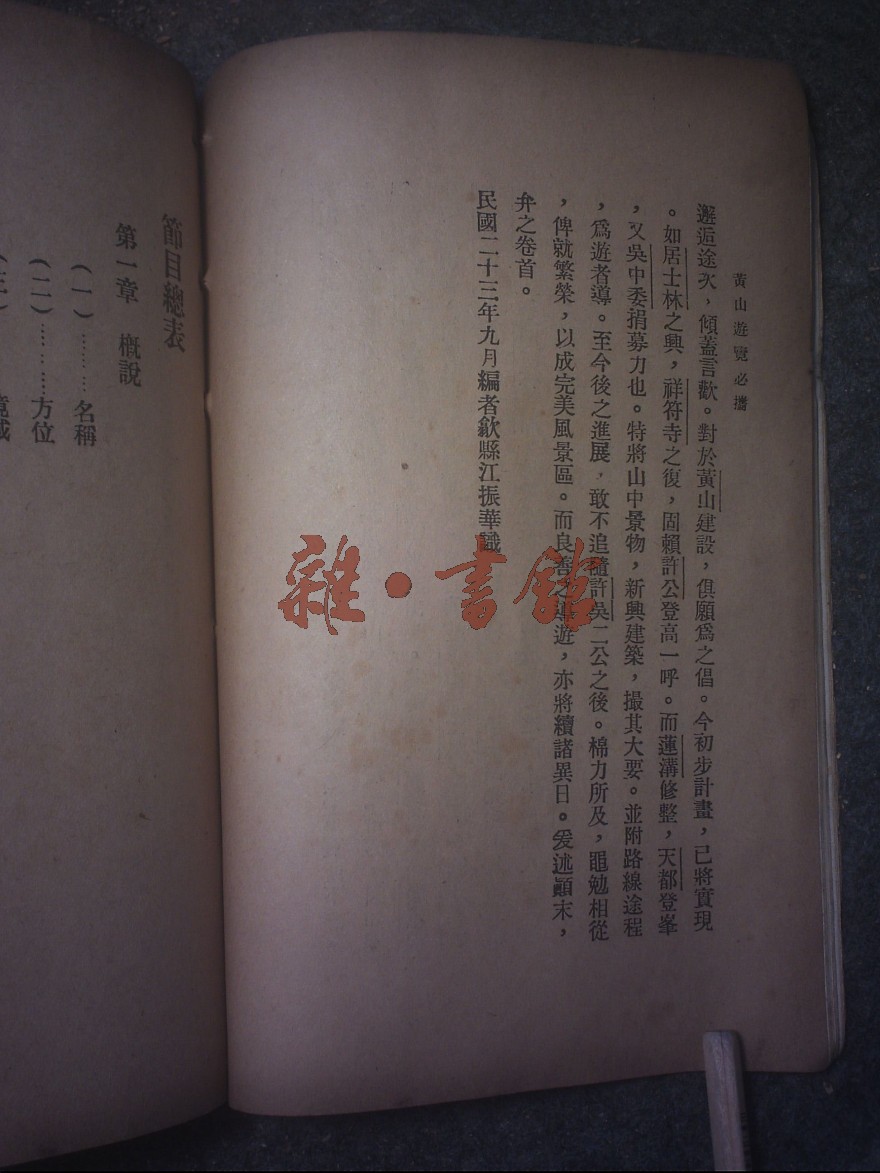 黃山遊覽必攜
邂逅途次，傾蓋言歡。對於黃山建設，俱願爲之倡。今初步計畫，已將實現
。如居士林之興，祥符寺之復，固賴許公登高一呼。而蓮溝修整，天都登峯
，又吳中委捐募力也。特將山中景物，新興建築，撮其大要。並附路線途程
，爲遊者導。至今後之進展，敢不追隨許吳二公之後。棉力所及，黽勉相從
，俾就繁榮，以成完美風景區。而良善之導遊，亦將續諸異日。爰述顚末，
弁之卷首。
民國二十三年九月編者歙縣江振華識
節目總表
第一章　概說
(一)………名稱
(二)………方位
雜·書館